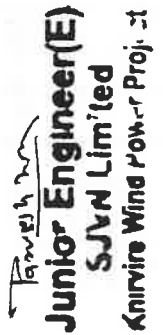 Junior Engineer(E)
SJVN Limited
Khirvire Wind Power Project